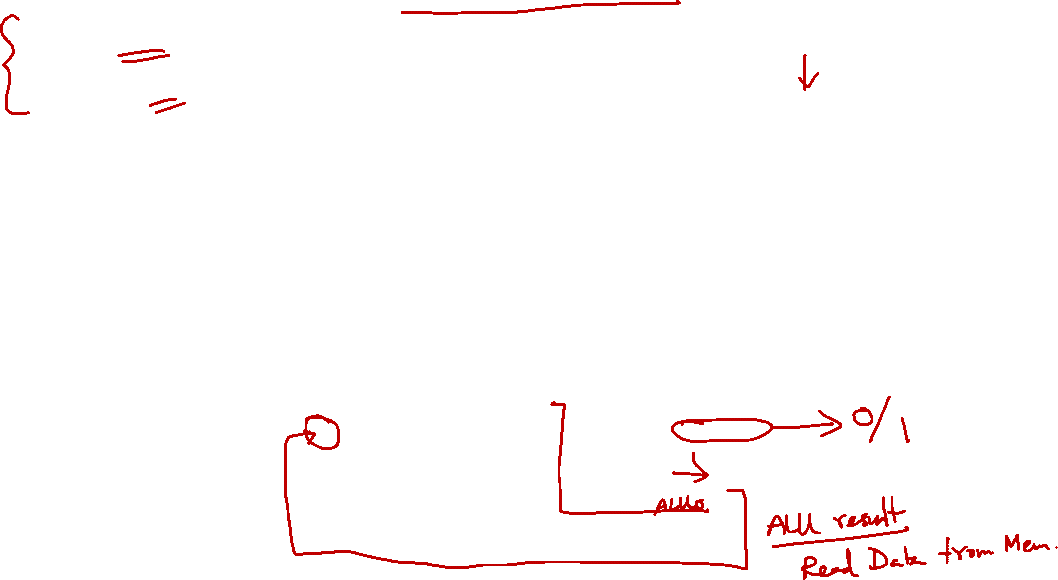 0/1
ALU result
Read Data from Mem.